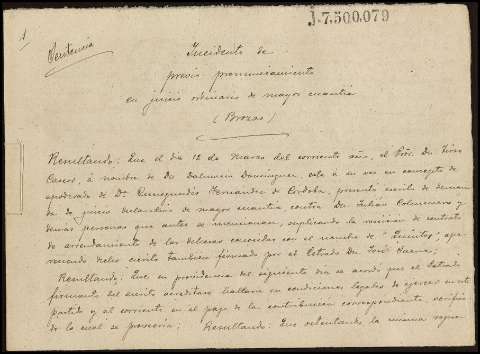 J-7.500.079
1
Sentencia
Incidente de
previo pronunciamiento
en juicio ordinario de mayor cuantía
(Brozas)
Resultando: Que el día 12 de Marzo del corriente año, el Pror. Dn.
á nombre de Dn. Dalmacio Domínguez, este á su vez en concepto de
apoderado de Dª. Fernandez de Cordoba, presentó escrito de deman
da de juicio declarativo de mayor cuantía contra Dn. Julián Colmenero y
demas personas que antes se mencionan, suplicando la rescisión de contrato
de arrendamiento de las dehesas conocidas con el nombre de
reciendo dicho escrito tambien firmado por el Letrado Dn. José
Resultando: Que en providencia del siguiente dia se acordó que el Letrado
firmante del escrito acreditara hallarse en condiciones legales de ejercer en este
partido y al corriente en el pago de la contribución correspondiente, verifica
do lo cual se proveería; Resultando: Que la misma